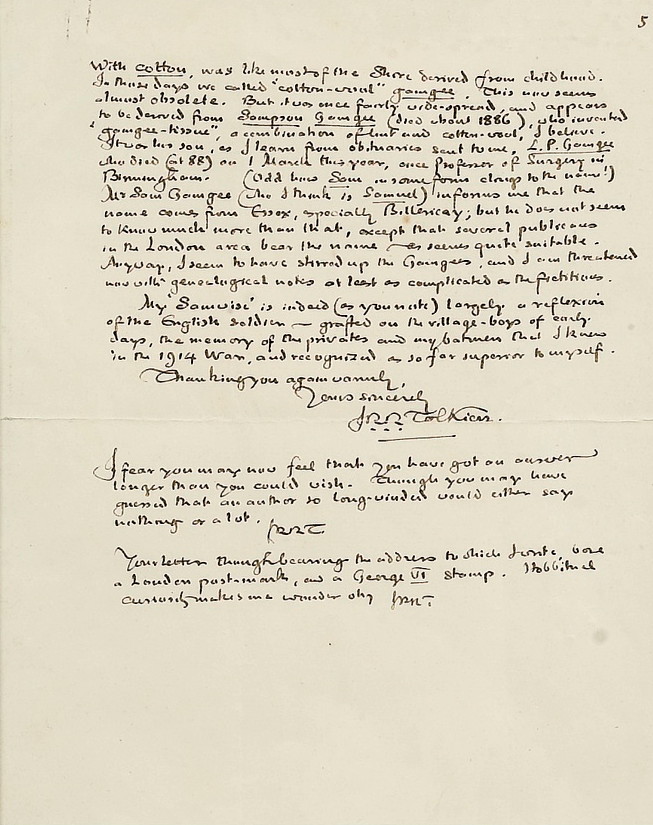 5
With cotton, was like most of the Shire derived from childhood.
In those days we called "cotton-wool" gamgee. This now seems
almost obsolete. But it was once fairly wide-spread, and appears
to be derived from Sampson Gamgee (died about 1886), who invented
"gamgee-tissue", a combination of lint and cotton-wool, I believe.
It was his son, as I learn from obituaries sent to me, L.P. Gamgee
who died (at 88) on 1 March this year, once Professor of Surgery in
Birmingham. (Odd how Sam in some form clings to the name!)
Mr Sam Gamgee (who I think is Samuel) informs me that the
name comes from Essex, especially Billericay; but he does not seem
to know much more than that, except that several publicans
in the London area bear the name – as seems quite suitable.
Anyway, I seem to have stirred up the Gamgees, and I am threatened
now with genealogical notes at least as complicated as the fictitious.
My 'Samwise' is indeed (as you note) largely a reflexion
of the English soldier – grafted on the village-boys of early
days, the memory of the privates and my batmen that I knew
in the 1914 War, and recognized as so far superior to myself.
Thanking you again warmly,
Yours sincerely
JRR Tolkien.
I fear you may now feel that you have got an answer
longer than you could wish. Though you may have
guessed that an author so long-winded would either say
nothing or a lot.
JRRT
Your letter though bearing the address to which I write, bore
a London post-mark, and a George VI stamp. Hobbitual
curiosity makes me wonder why JRRT.